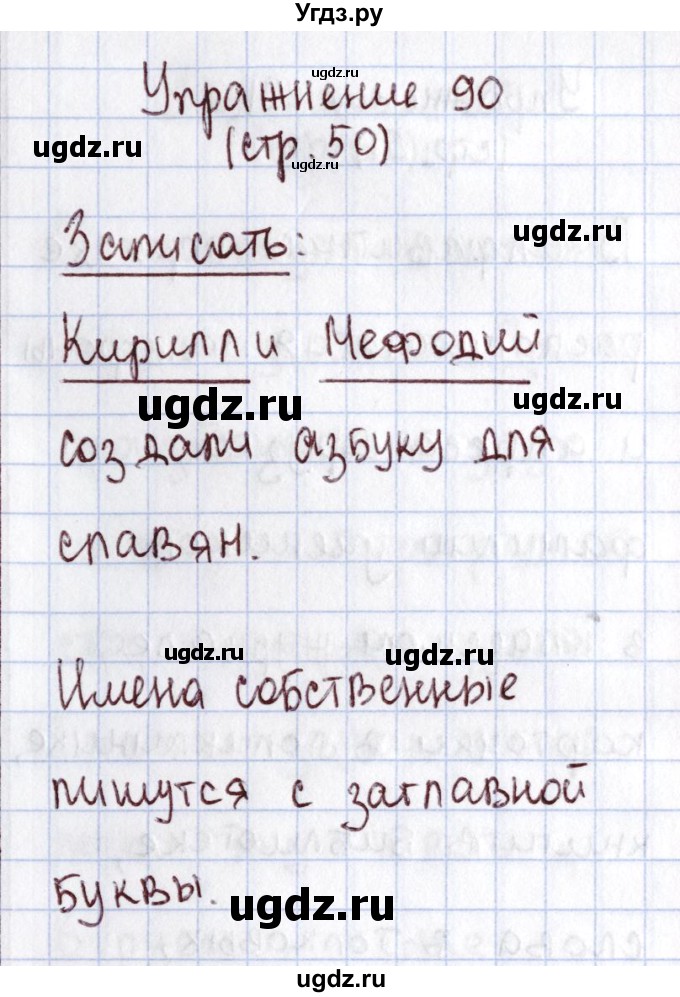 Угдз.ру
Упражнение 90
ugdz.ru
ugdz.ru
(стр. 50)
ugdz.ru
Записать:
ugdz.ru
Кирилл и Мефодий
ugdz.ru
ugdz.ru
создали азбуку для
славян.
ugdz.ru
ugdz.ru
Имена собственные
пишутся с заглавной
буквы.
ugdz.ru
ugdz.ru